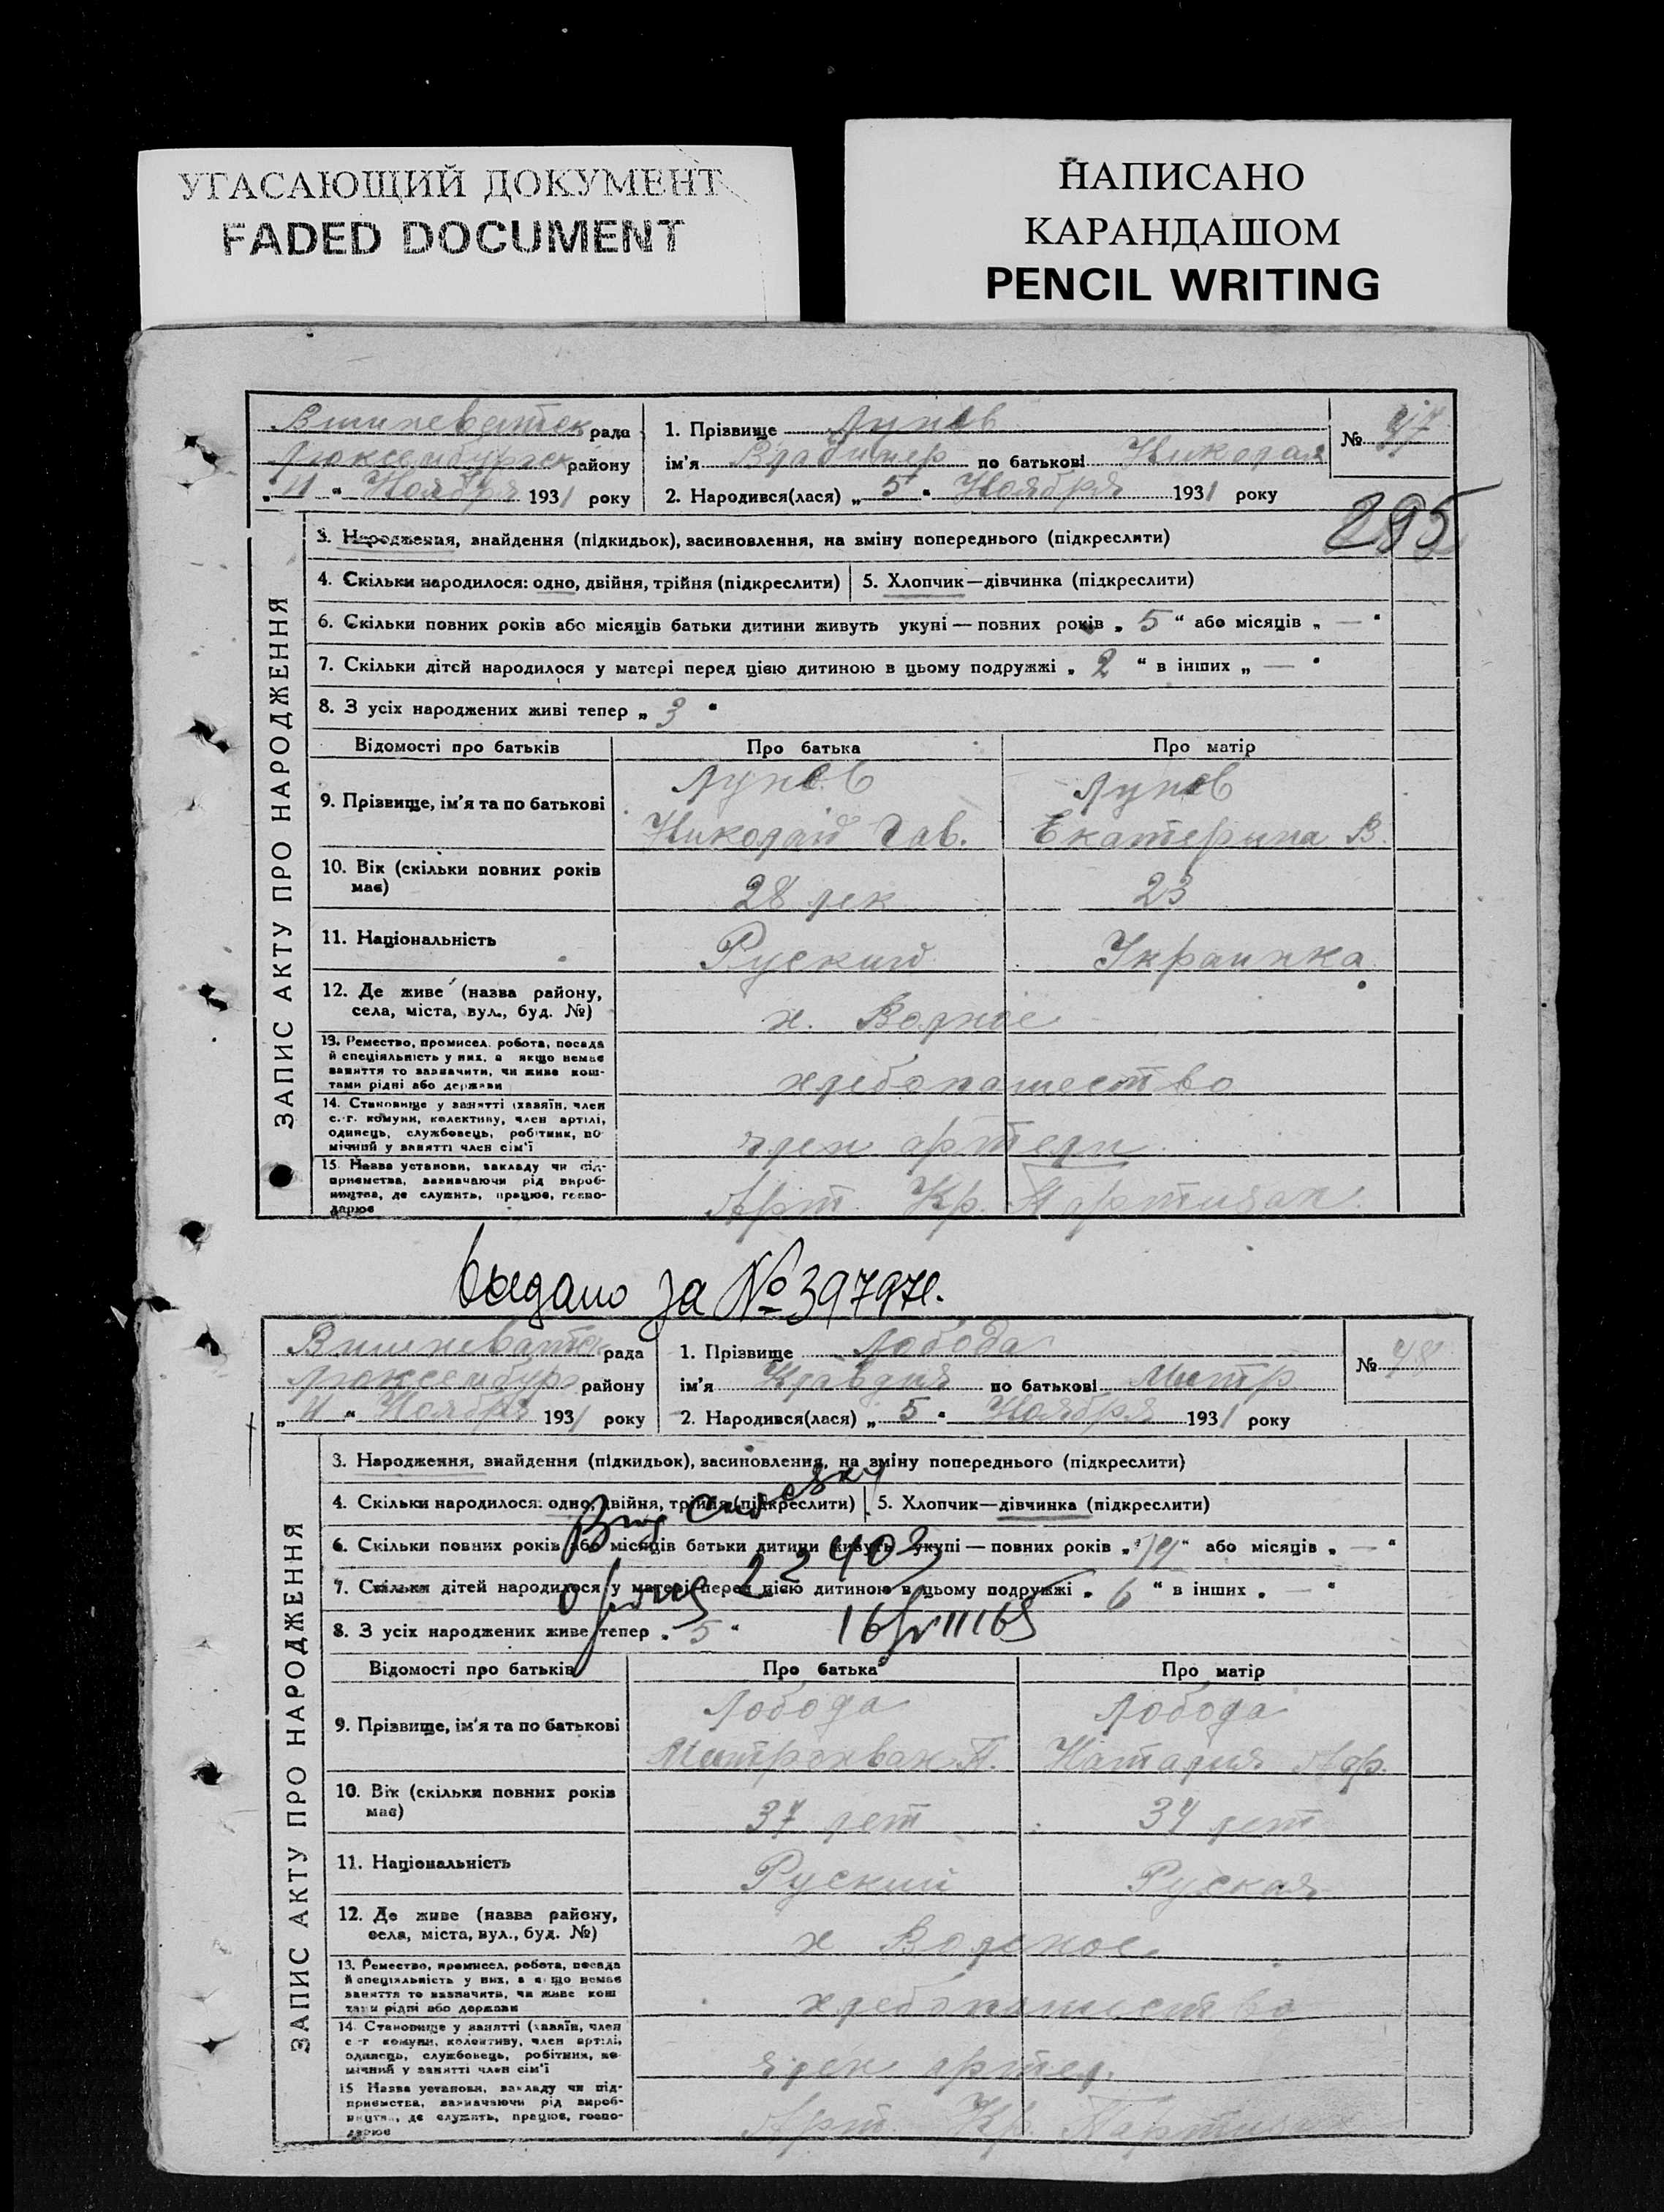 УГАСАЮЩИЙ ДОКУМЕНТ
FADED DOCUMENT
НАПИСАНО
КАРАНДАШОМ
PENCIL WRITING
Вишневатск рада
Люксембургск району
„ 11 “ Ноября 1931 року
1. Прізвище Лунев
ім'я Владимер по батькові Николая
2. Народився(лася) „ 5 “ Ноября 1931 року
№ 47
295
ЗАПИС АКТУ ПРО НАРОДЖЕННЯ
3. Народження, знайдення (підкидьок), засиновлення, на зміну попереднього (підкреслити)
4. Скільки народилося: одно, двійня, трійня (підкреслити)
5. Хлопчик—дівчинка (підкреслити)
6. Скільки повних років або місяців батьки дитини живуть укупі — повних років „ 5 “ або місяців „ — “
7. Скільки дітей народилося у матері перед цією дитиною в цьому подружжі „ 2 “ в інших „ — “
8. З усіх народжених живі тепер „ 3 “
Відомості про батьків
Про батька
Про матір
9. Прізвище, ім'я та по батькові
Лунев
Николай Гав.
Лунев
Екатерина В.
10. Вік (скільки повних років
має)
28 лек
23
11. Національність
Руский
Украинка
12. Де живе (назва району,
села, міста, вул., буд. №)
х. Волное
13. Ремество, промисел, робота, посада
й спеціяльність у них, а якщо немає
заняття то зазначити, чи живе кош-
тами рідні або держави
хлебопашество
14. Становище у занятті (хазяїн, член
с.-г. комуни, колективу, член артілі,
одинець, службовець, робітник, по-
мічний у занятті член сім'ї
член артели
15. Назва установи, закладу чи під-
приємства, зазначаючи рід вироб-
ництва, де служить, працює, госпо-
дарює
Арт. Кр. Партизан
выдано за №
Вишневатск рада
Люксембург району
„ 11 “ Ноября 1931 року
1. Прізвище Лобода
ім'я Клавдия по батькові Митр.
2. Народився(лася) „ 5 “ Ноября 1931 року
№ 48
ЗАПИС АКТУ ПРО НАРОДЖЕННЯ
3. Народження, знайдення (підкидьок), засиновлення, на зміну попереднього (підкреслити)
4. Скільки народилося: одно, двійня, трійня (підкреслити)
5. Хлопчик—дівчинка (підкреслити)
6. Скільки повних років або місяців батьки дитини живуть укупі — повних років „ 14 “ або місяців „ — “
7. Скільки дітей народилося у матері перед цією дитиною в цьому подружжі „ 6 “ в інших „ — “
8. З усіх народжених живе тепер „ 5 “
Відомості про батьків
Про батька
Про матір
9. Прізвище, ім'я та по батькові
Лобода
Митрохван П.
Лобода
Наталия Афр.
10. Вік (скільки повних років
має)
37 лет
34 лет
11. Національність
Руский
Руская
12. Де живе (назва району,
села, міста, вул., буд. №)
х Воленое
13. Ремество, промисел, робота, посада
й спеціяльність у них, а якщо немає
заняття то зазначити, чи живе кош
тами рідні або держави
хлебопашество
14. Становище у занятті (хазяїн, член
с.-г. комуни, колективу, член артілі,
одинець, службовець, робітник, по-
мічний у занятті член сім'ї
член артел.
15 Назва установи, закладу чи під-
приємства, зазначаючи рід вироб-
ництва, де служить, працює, госпо-
дарює
Арт. Кр Партизан